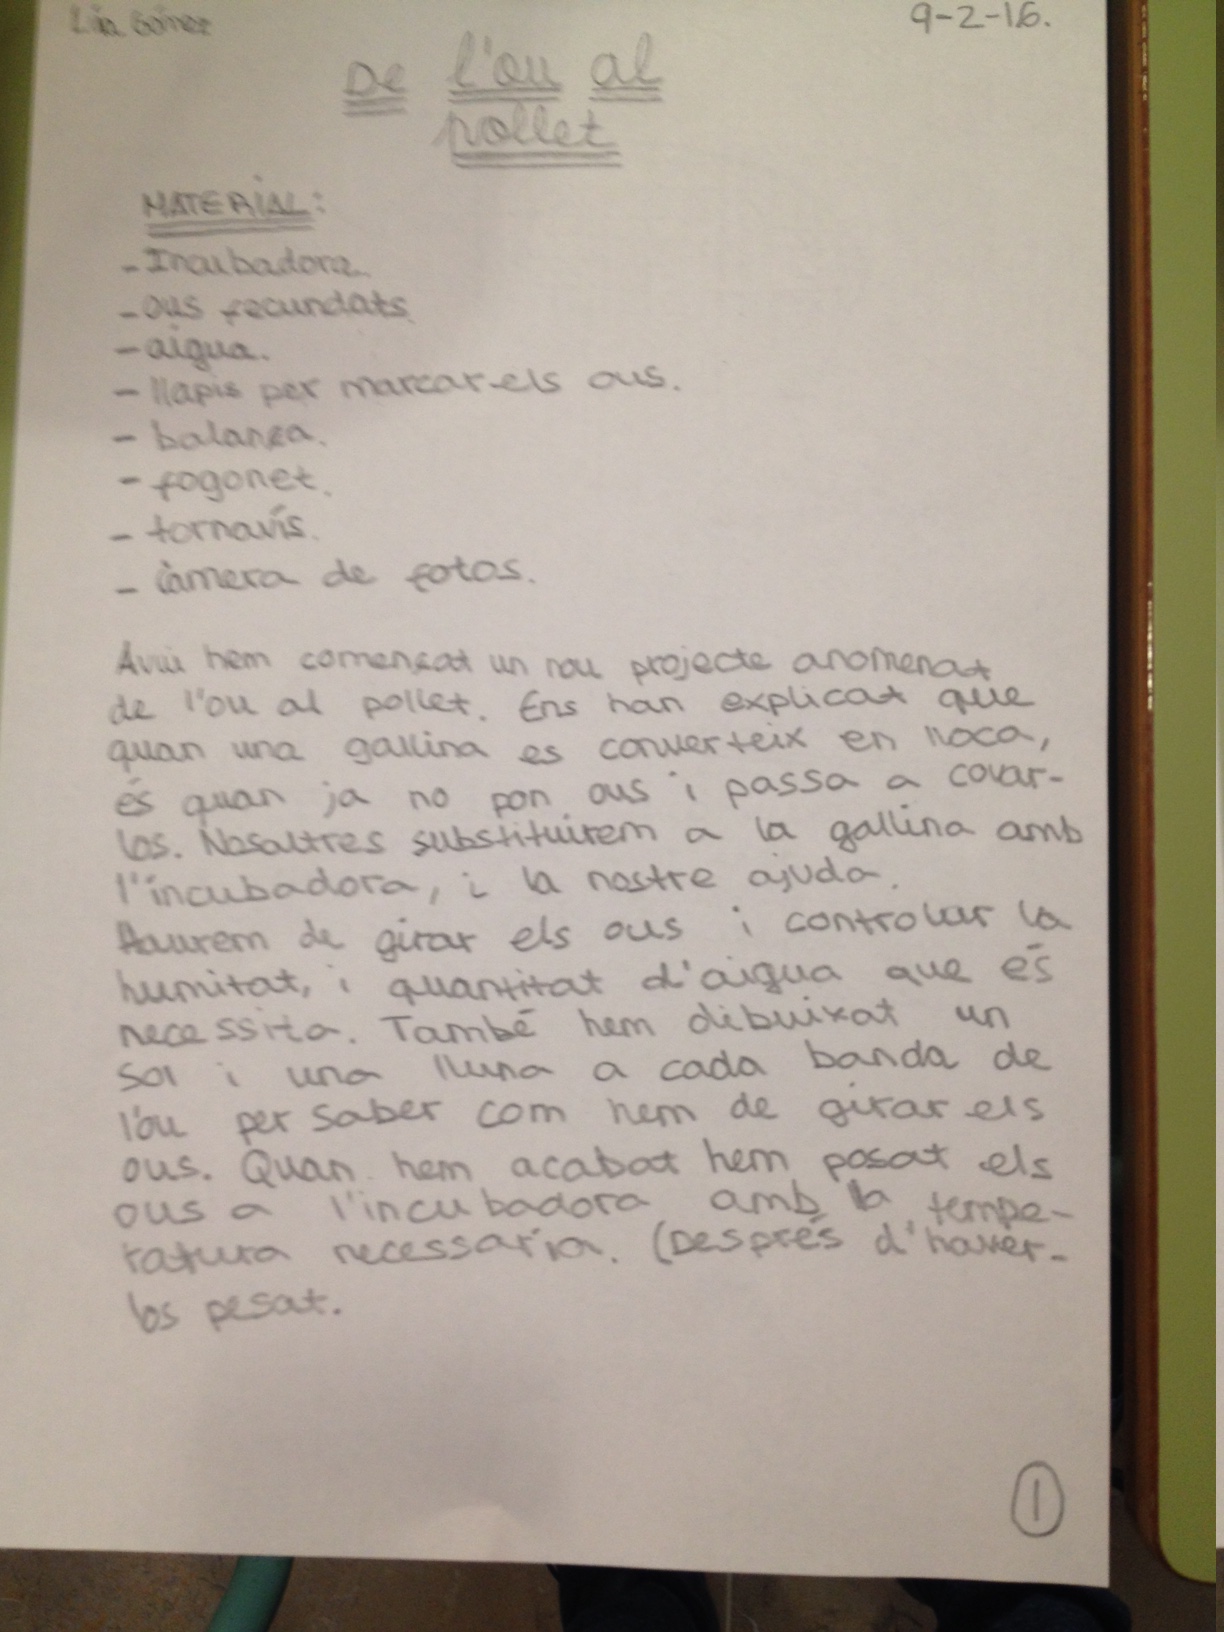 Lia Gómez
9-2-16.
De l'ou al
pollet
MATERIAL:
- Incubadora.
- ous fecundats.
- aigua.
- llapis per marcar els ous.
- balança.
- fogonet.
- tornavís.
- càmera de fotos.
Avui hem començat un nou projecte anomenat
de l'ou al pollet. Ens han explicat que
quan una gallina es converteix en lloca,
és quan ja no pon ous i passa a covar-
los. Nosaltres substituirem a la gallina amb
l'incubadora, i la nostre ajuda.
Haurem de girar els ous i controlar la
humitat, i quantitat d'aigua que és
necessita. També hem dibuixat un
sol i una lluna a cada banda de
l'ou per saber com hem de girar els
ous. Quan hem acabat hem posat els
ous a l'incubadora amb la tempe-
ratura necessaria. (Després d'haver-
los pesat.
1